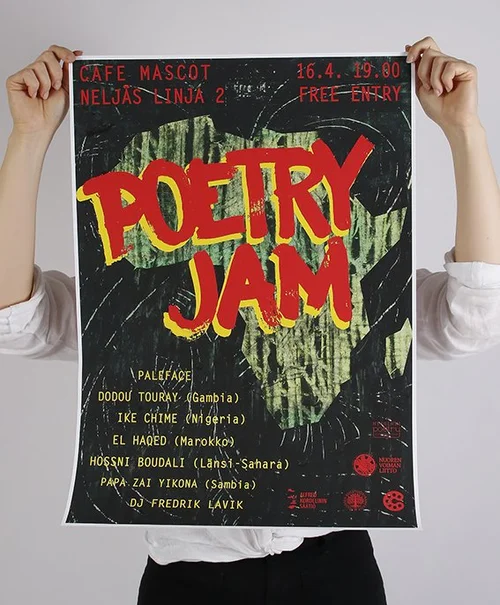 CAFE MASCOT
NELJÄS LINJA 2
16.4. 19.00
FREE ENTRY
POETRY
JAM
PALEFACE
DODOU TOURAY (Gambia)
IKE CHIME (Nigeria)
EL HAQED (Marokko)
HOSSNI BOUDALI (Länsi-Sahara)
PAPA ZAI YIKONA (Sambia)
DJ FREDRIK LAVIK
NUOREN
VOIMAN
LIITTO
ALFRED
KORDELININ
SÄÄTIÖ